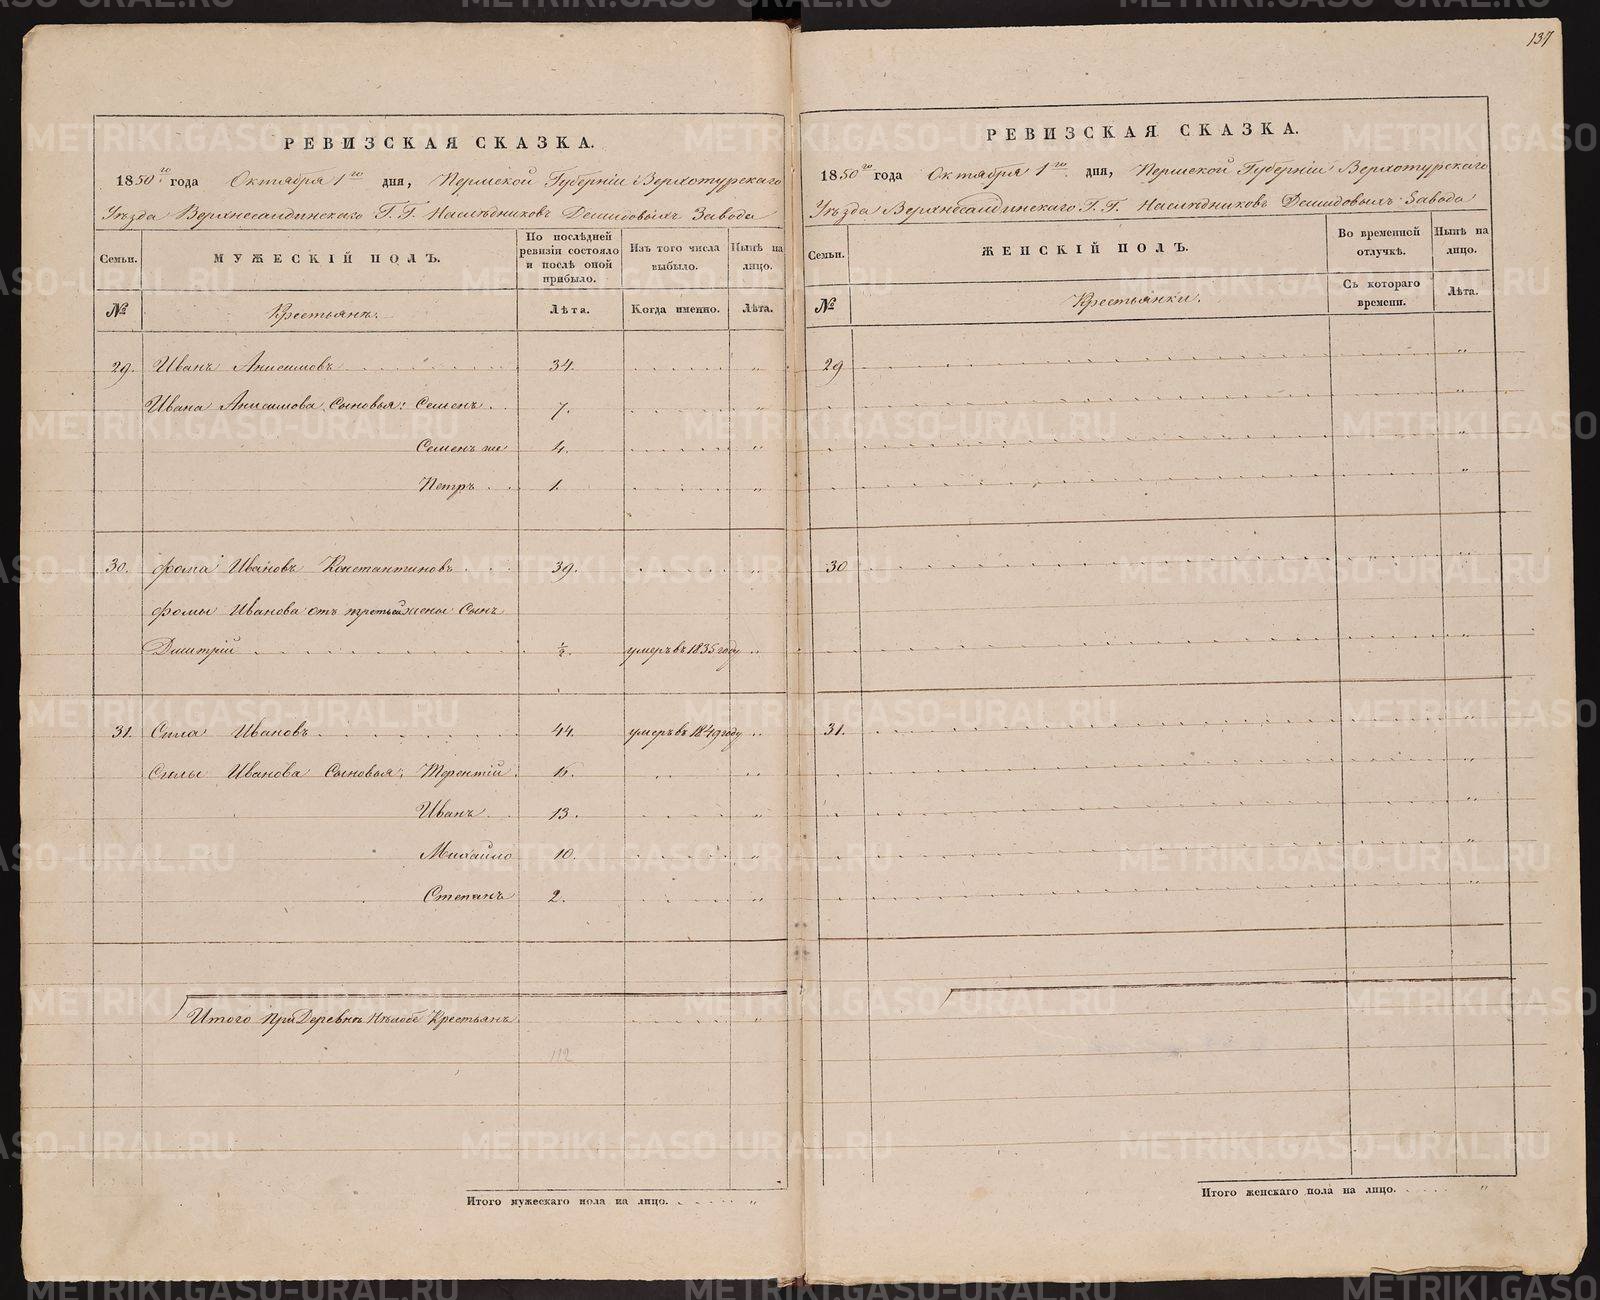 137
РЕВИЗСКАЯ СКАЗКА.
1850го года Октября 1го дня, Пермской Губерніи Верхотурскаго
Уѣзда Верхнесалдинскаго Г.Г. Наслѣдниковъ Демидовыхъ Завода
Семьи. МУЖЕСКІЙ ПОЛЪ. По послѣдней ревизіи состояло и послѣ оной прибыло. Изъ того числа выбыло. Нынѣ на лицо.
№ Крестьянъ. Лѣта. Когда именно. Лѣта.
29. Иванъ Анисимовъ 34. "
Ивана Анисимова Сыновья: Семенъ 7. "
Семенъ же 4. "
Петръ 1. "
30. Фома Ивановъ Константиновъ 39. "
Фомы Иванова отъ третьей жены Сынъ
Дмитрій ½. умеръ въ 1835 году "
31. Сила Ивановъ 44. умеръ въ 1849 году "
Силы Иванова Сыновья: Терентій 15. "
Иванъ 13. "
Михайло 10. "
Степанъ 2. "
Итого при Деревнѣ Крестьянъ "
112
Итого мужескаго пола на лицо. "
РЕВИЗСКАЯ СКАЗКА.
1850го года Октября 1го дня, Пермской Губерніи Верхотурскаго
Уѣзда Верхнесалдинскаго Г.Г. Наслѣдниковъ Демидовыхъ Завода
Семьи. ЖЕНСКІЙ ПОЛЪ. Во временной отлучкѣ. Нынѣ на лицо.
№ Крестьянки. Съ котораго времени. Лѣта.
29 "
30 "
31. "
Итого женскаго пола на лицо. "
METRIKI.GASO-URAL.RU